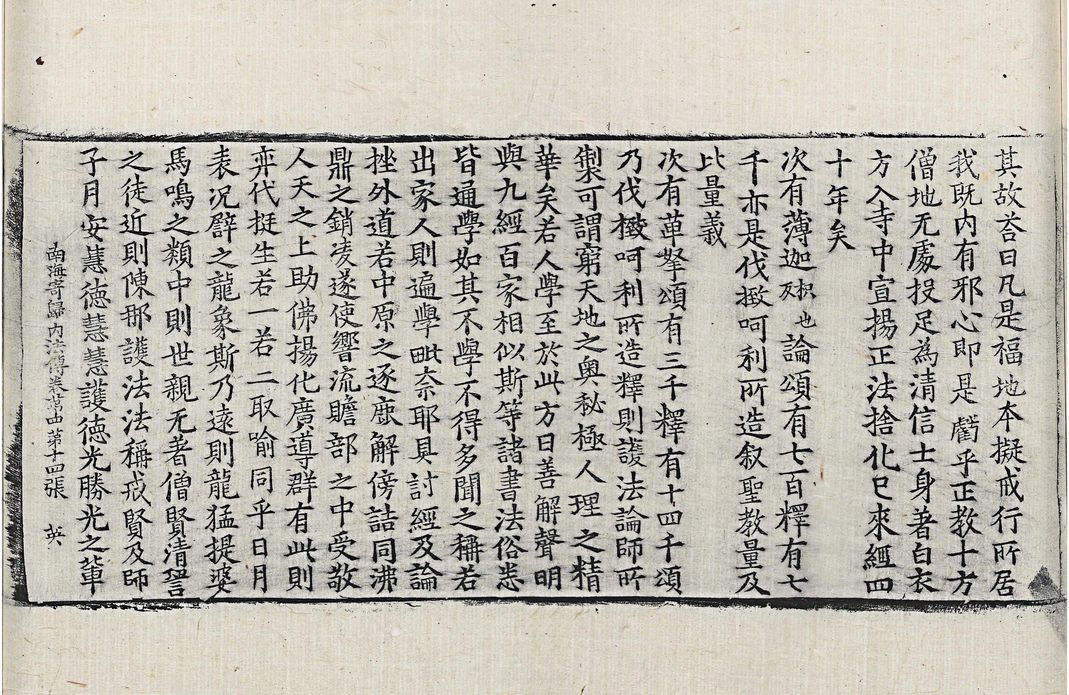 其故荅曰凡是福地本擬戒行所居
我既內有邪心即是虧乎正教十方
僧地无處投足為清信士身著白衣
方入寺中宣揚正法捨化已來經四
十年矣
次有薄迦枳也反論頌有七百釋有七
千亦是伐㨖呵利所造叙聖教量及
比量義
次有革拏頌有三千釋有十四千頌
乃伐㨖呵利所造釋則護法論師所
製可謂窮天地之奧秘極人理之精
華矣若人學至於此方曰善解聲明
與九經百家相似斯等諸書法俗悉
皆通學如其不學不得多聞之稱若
出家人則遍學毗奈耶具討經及論
挫外道若中原之逐鹿解傍詰同沸
鼎之銷凌遂使響流贍部之中受敬
人天之上助佛揚化廣導群有此則
弈代挺生若一若二取喻同乎日月
表況譬之龍象斯乃遠則龍猛提婆
馬鳴之類中則世親无著僧賢清哲
之徒近則陳那護法法稱戒賢及師
子月安慧德慧慧護德光勝光之輩
南海寄歸內法傳卷第四第十四張 英